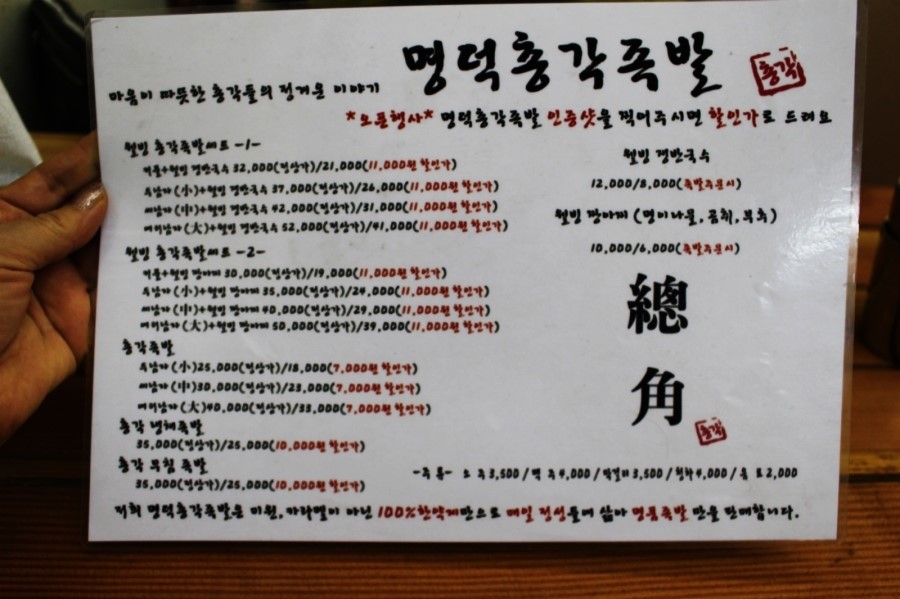 명덕총각족발
총각
마음이 따뜻한 총각들의 정겨운 이야기
*오픈행사* 명덕총각족발 인증샷을 찍어주시면 할인가로 드려요
웰빙 총각족발세트 -1-
커플+웰빙 쟁반국수 32,000(정상가)/21,000(11,000원 할인가)
(小)+웰빙 쟁반국수 37,000(정상가)/26,000(11,000원 할인가)
(中)+웰빙 쟁반국수 42,000(정상가)/31,000(11,000원 할인가)
(大)+웰빙 쟁반국수 52,000(정상가)/41,000(11,000원 할인가)
웰빙 총각족발세트 -2-
커플+웰빙 짱아찌 30,000(정상가)/19,000(11,000원 할인가)
(小)+웰빙 짱아찌 35,000(정상가)/24,000(11,000원 할인가)
(中)+웰빙 짱아찌 40,000(정상가)/29,000(11,000원 할인가)
(大)+웰빙 짱아찌 50,000(정상가)/39,000(11,000원 할인가)
총각족발
(小)25,000(정상가)/18,000(7,000원 할인가)
(中)30,000(정상가)/23,000(7,000원 할인가)
(大)40,000(정상가)/33,000(7,000원 할인가)
총각 냉채족발
35,000(정상가)/25,000(10,000원 할인가)
총각 무침 족발
35,000(정상가)/25,000(10,000원 할인가)
웰빙 쟁반국수
12,000/8,000(족발주문시)
웰빙 짱아찌 (명이나물,곰취,부추)
10,000/6,000(족발주문시)
總
角
총각
-주류- 소 주 3,500 / 맥 주 4,000 / 막걸리 3,500 / 청하 4,000 / 음 료 2,000
저희 명덕총각족발은 미원,카라멜이 아닌 100%한약재만으로 매일 정성들여 삶아 명품족발 만을 판매합니다.